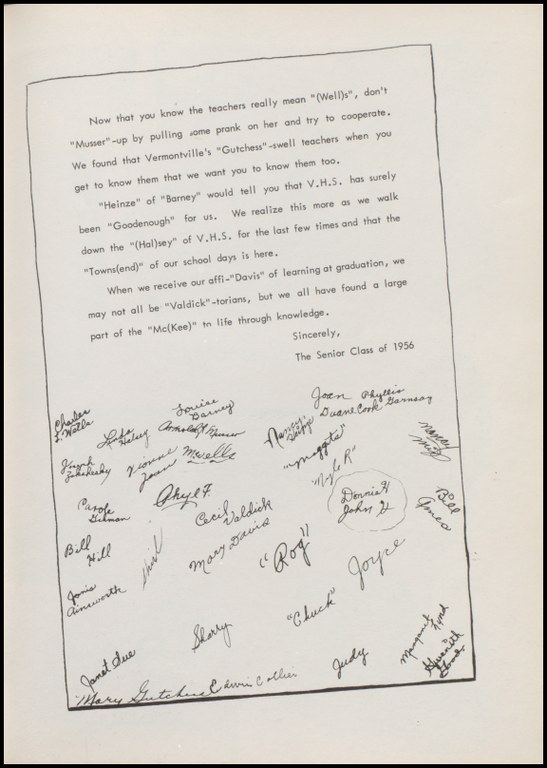 Now that you know the teachers really mean "(Well)s", don't
"Musser"-up by pulling some prank on her and try to cooperate.
We found that Vermontville's "Gutchess"-swell teachers when you
get to know them that we want you to know them too.
"Heinze" of "Barney" would tell you that V.H.S. has surely
been "Goodenough" for us. We realize this more as we walk
down the "(Hal)sey" of V.H.S. for the last few times and that the
"Towns(end)" of our school days is here.
When we receive our affi-"Davis" of learning at graduation, we
may not all be "Valdick"-torians, but we all have found a large
part of the "Mc(Kee)" to life through knowledge.
Sincerely,
The Senior Class of 1956
Charles
Louise
Barney
Joan Phyllis
Duane Cook
Halsey
Arnold Musser
Nancy
"Miggets"
Nancy
Joan
M. Wells
Myle R
Phyl F.
Donnie H
John H
Bill
Carole
Cecil Valdick
Mary Davis
Bill
Hill
Shirl
"Rog"
Joyce
Janis
Ainsworth
"Chuck"
Sherry
Judy
Margaret
Janet Sue
Mary Gutchess
Edwin Collier